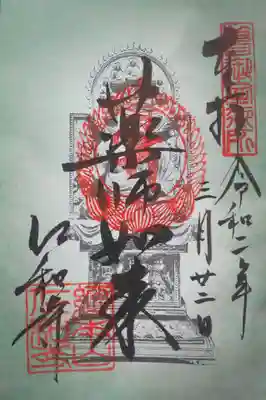 奉拝
令和二年
三月廿二日
薬師如来
仁和寺